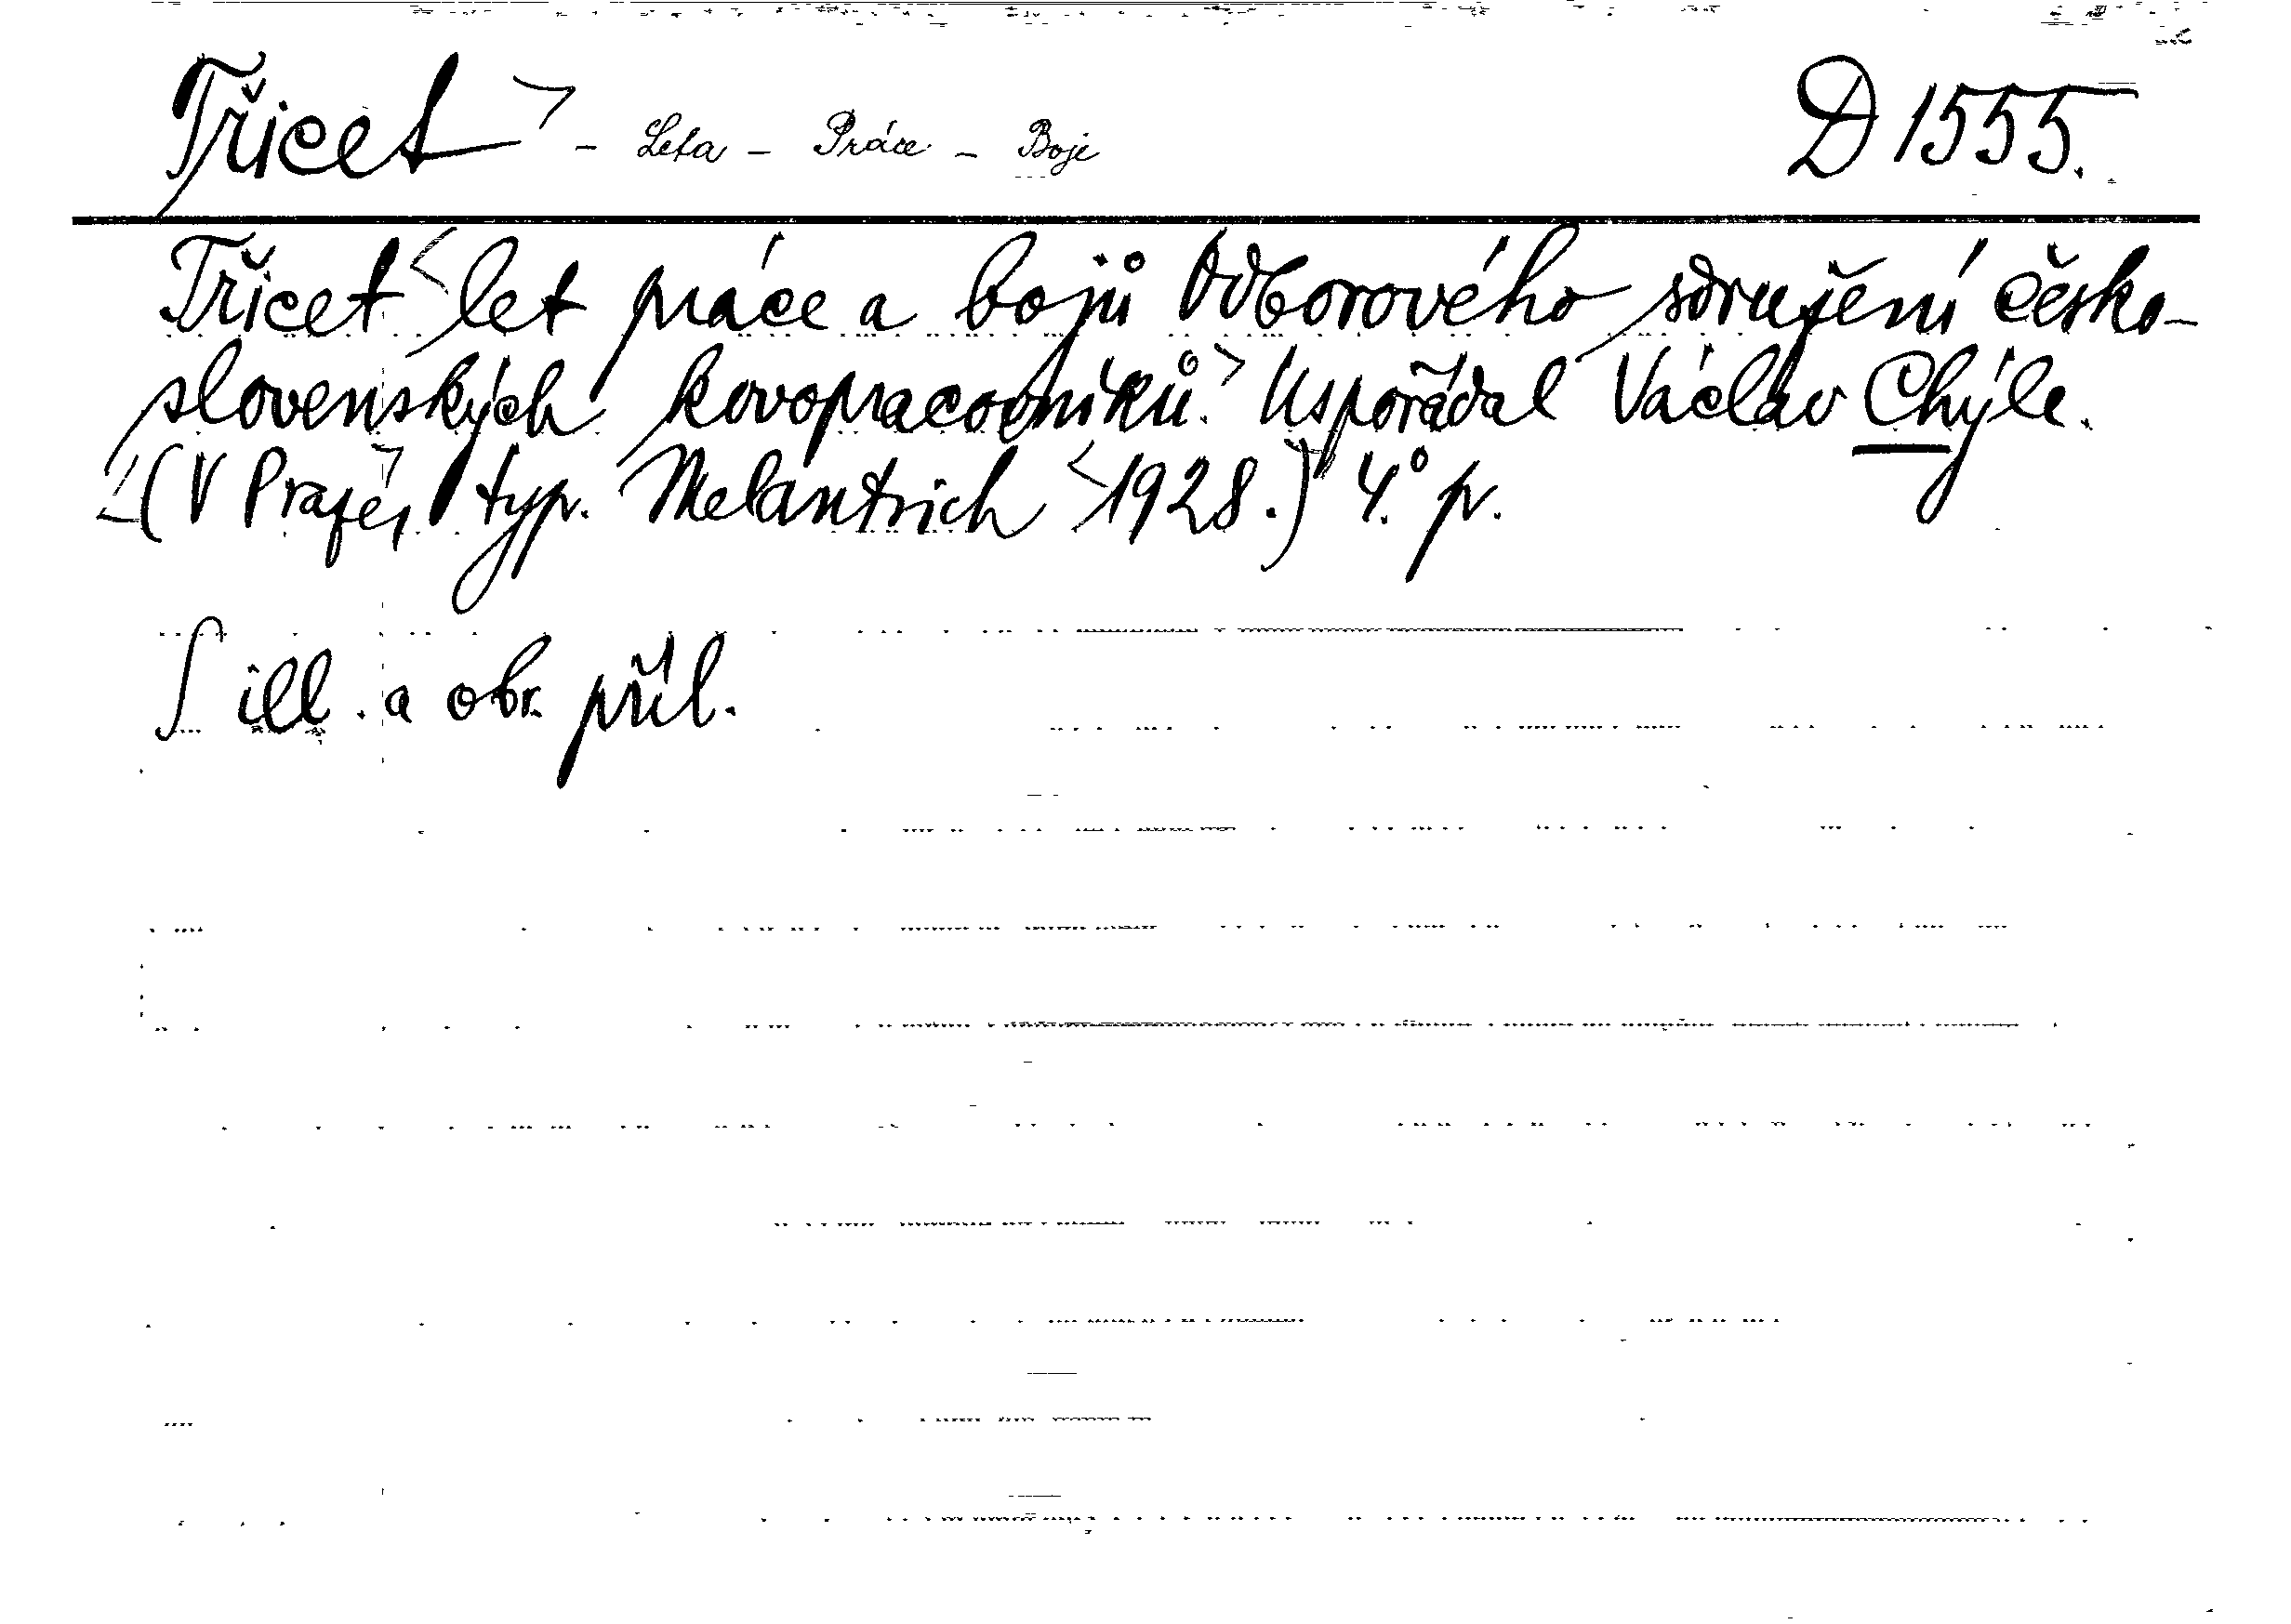 Třicet - Leta - Práce - Boje D 1555.
Třicet let práce a bojů Odborového sdružení česko-
slovenských kovopracovníků. Uspořádal Václav Chýle.
(V Praze, typ. Melantrich 1928.) 4.° p.
S ill. a obr. příl.